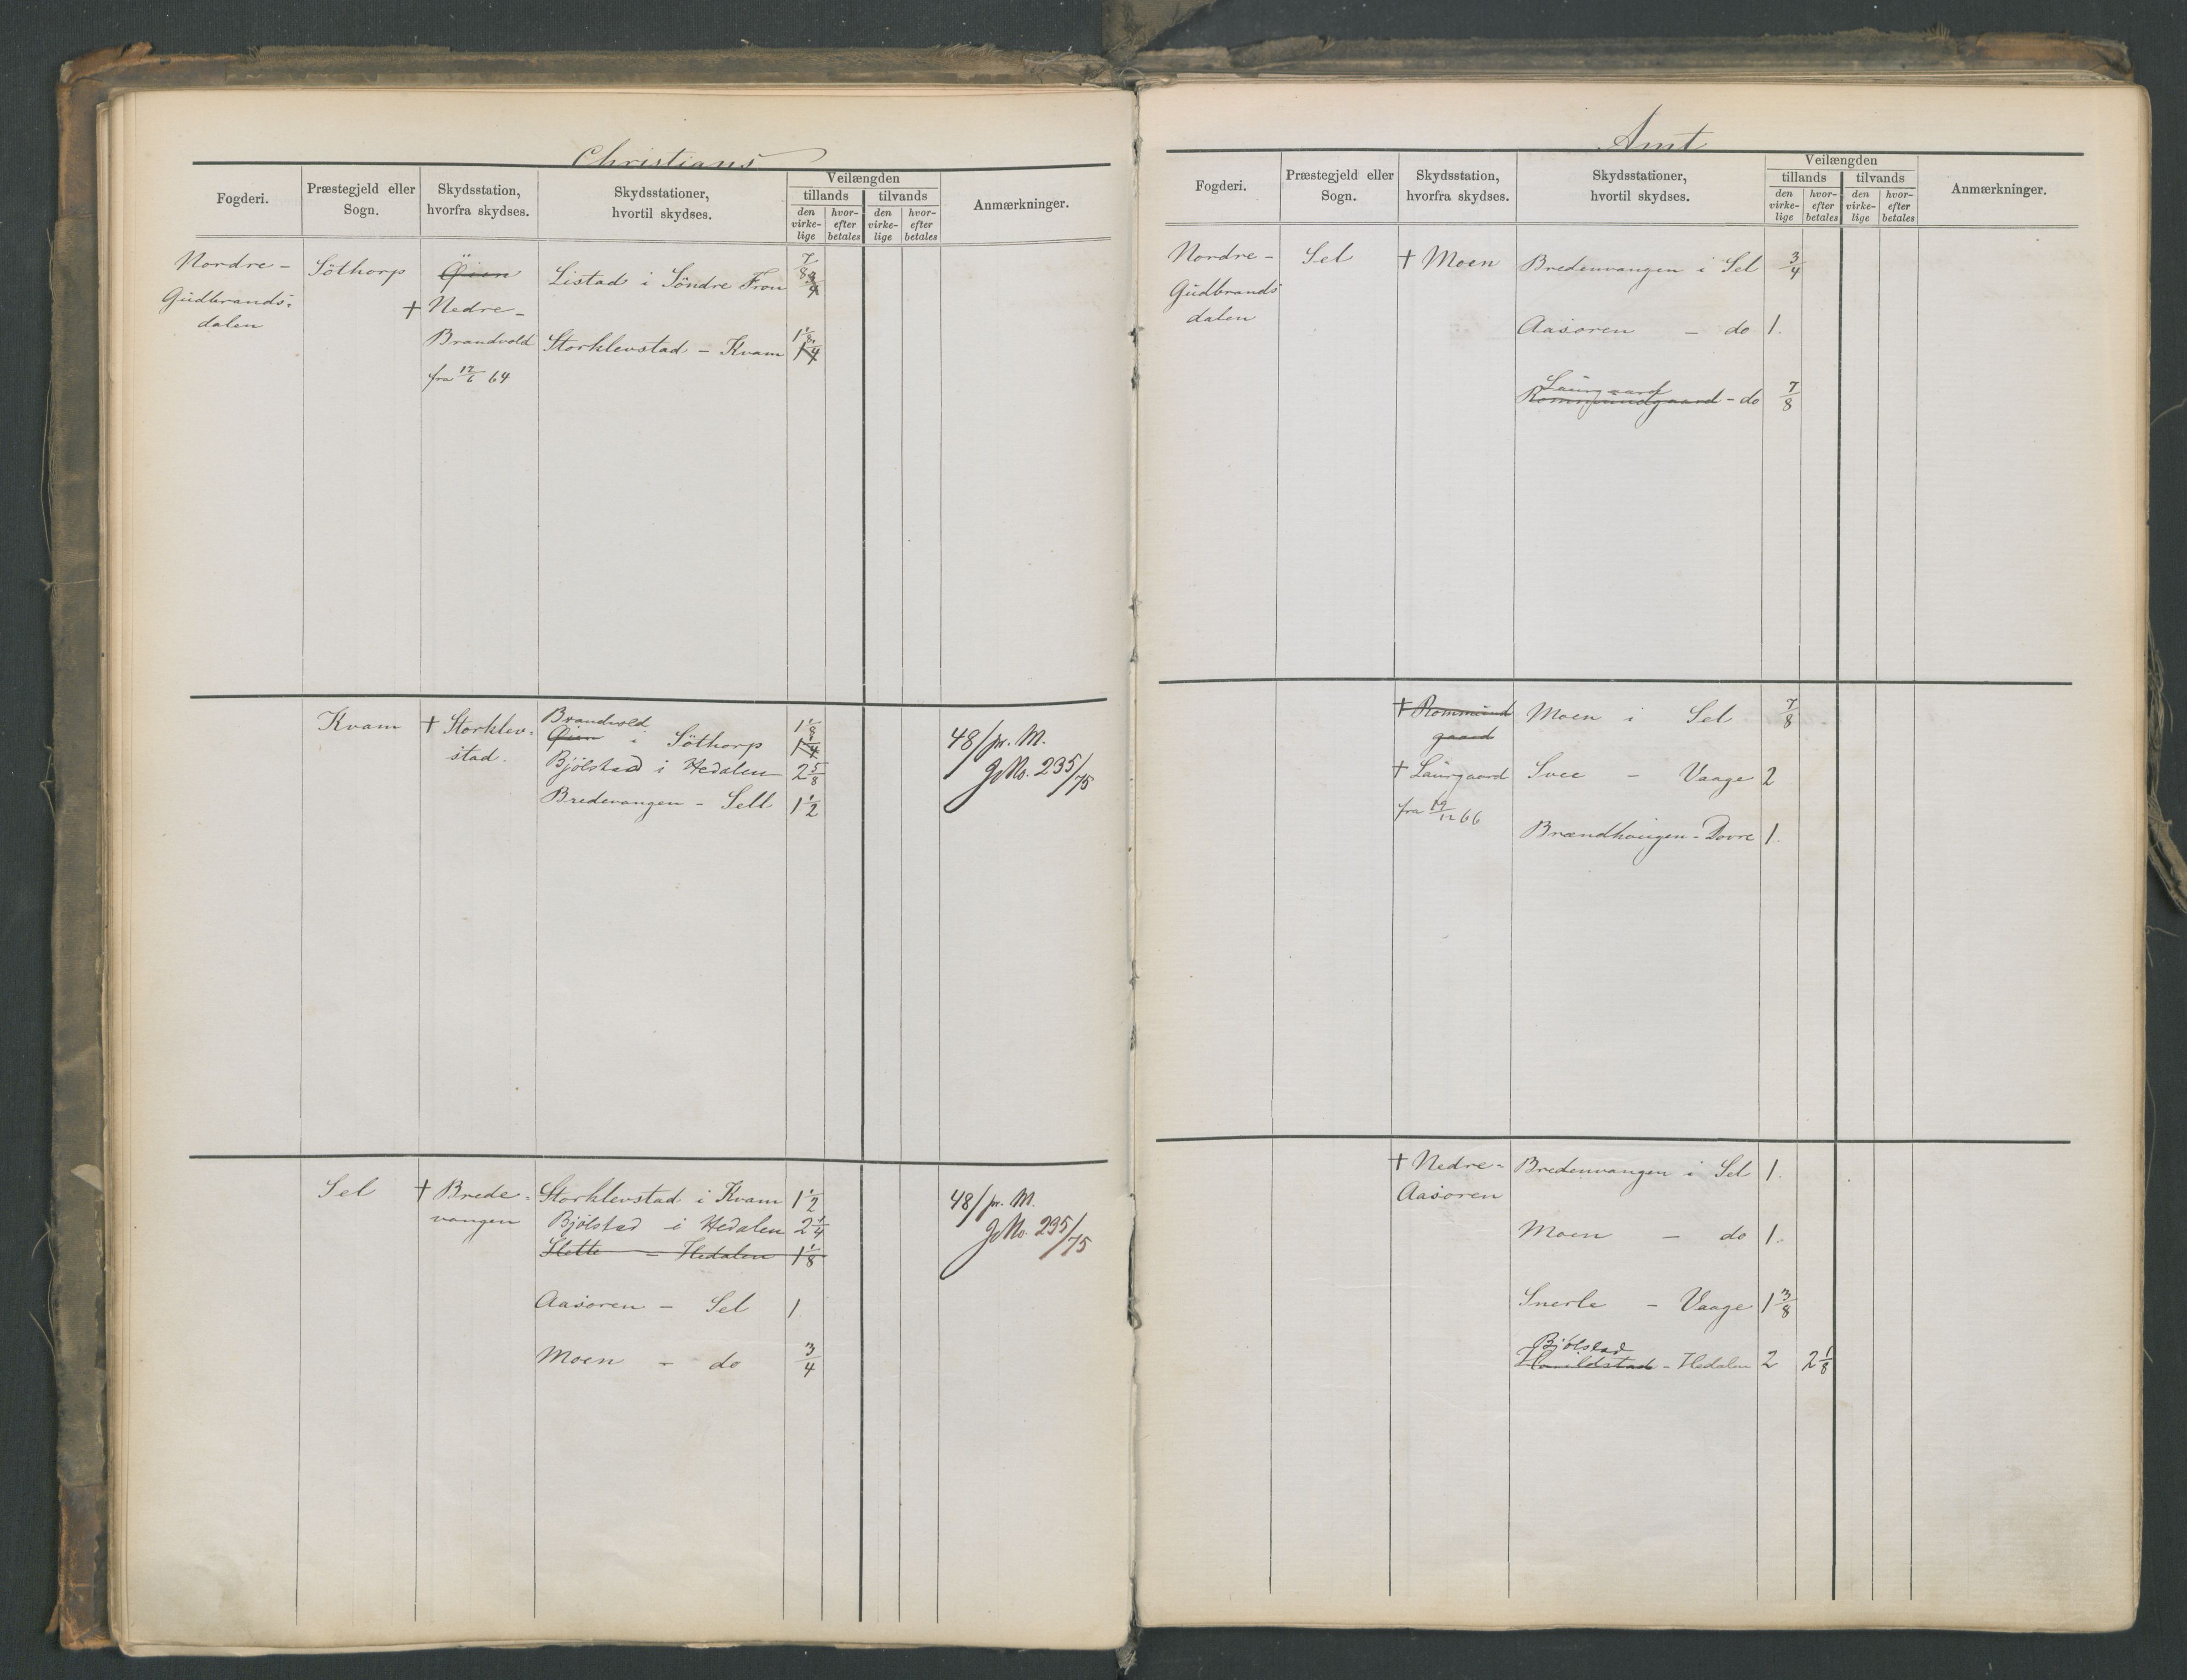 Christians
Fogderi.
Præstegjeld eller
Sogn.
Skydsstation,
hvorfra skydses.
Skydsstationer,
hvortil skydses.
Veilængden
tillands
tilvands
den
virke-
lige
hvor-
efter
betales
den
virke-
lige
hvor-
efter
betales
Anmærkninger.
Nordre-
Gudbrands-
dalen
Söthorp
Øien
+ Nedre-
Brandvold
fra 12/6 64
Listad i Söndre Fron 7/8 3/4
Storklevstad - Kvam 1 1/8 1 1/4
Kvam
+ Storklev-
stad.
Brandvold
Øien i Söthorp 1 1/8 1 1/4
Bjölstad i Hedalen 2 5/8
Bredevangen - Sell 1 1/2
48/ pr. M.
J No. 235/75
Sel
+ Brede-
vangen
Storklevstad i Kvam 1 1/2
Bjölstad i Hedalen 2 1/4
Slette - Hedalen 1 1/8
Aasoren - Sel 1.
Moen - do 3/4
48/ pr. M.
J No. 235/75
Amt
Fogderi.
Præstegjeld eller
Sogn.
Skydsstation,
hvorfra skydses.
Skydsstationer,
hvortil skydses.
Veilængden
tillands
tilvands
den
virke-
lige
hvor-
efter
betales
den
virke-
lige
hvor-
efter
betales
Anmærkninger.
Nordre-
Gudbrands
dalen
Sel
+ Moen
Bredenvangen i Sel 3/4
Aasoren - do 1.
Laurgaard
Rommundgaard - do 7/8
+ Rommund
gaard
+ Laurgaard
fra 19/12 66
Moen i Sel 7/8
Svee - Vaage 2
Brændhougen - Dovre 1.
+ Nedre-
Aasoren
Bredenvangen i Sel 1.
Moen - do 1.
Snerle - Vaage 1 3/8
Bjölstad
- Hedalen 2 2 1/8